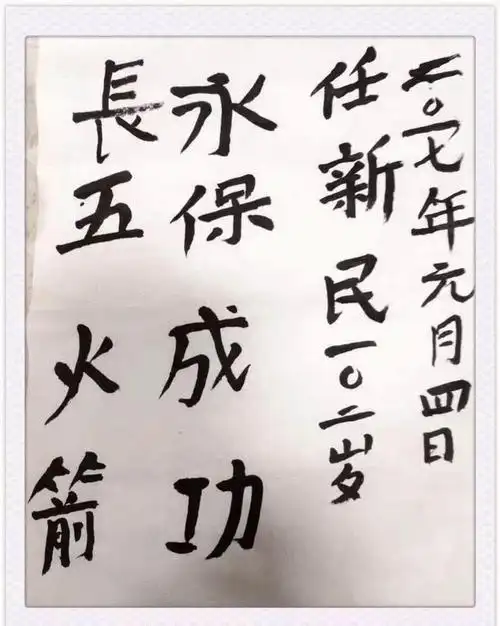 長五火箭
永保成功
任新民一〇二岁
二〇一七年元月四日